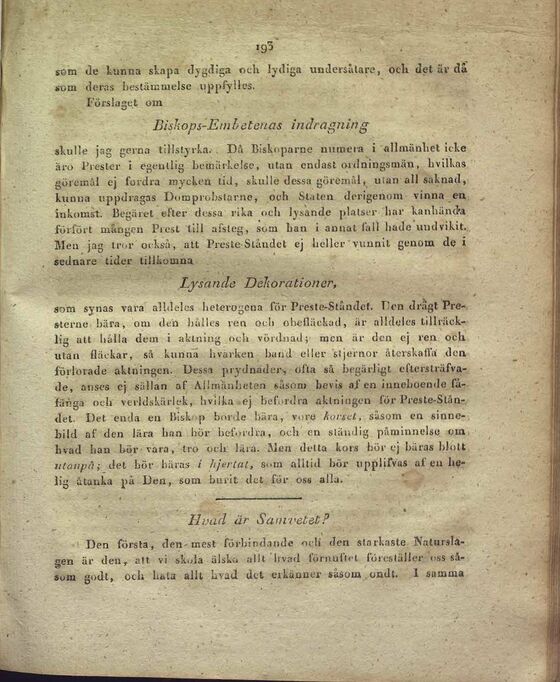 193
som de kunna skapa dygdiga och lydiga undersåtare, och det är då
som deras bestämmelse uppfylles.
Förslaget om
Biskops-Embetenas indragning
skulle jag gerna tillstyrka. Då Biskoparne numera i allmänhet icke
äro Prester i egentlig bemärkelse, utan endast ordningsmän, hvilkas
göremål ej fordra mycken tid, skulle dessa göremål, utan all saknad,
kunna uppdragas Domprobstarne, och Staten derigenom vinna en
inkomst. Begäret efter dessa rika och lysande platser har kanhända
förfört mången Prest till afsteg, som han i annat fall hade undvikit.
Men jag tror också, att Preste-Ståndet ej heller vunnit genom de i
sednare tider tillkomna
Lysande Dekorationer,
som synas vara alldeles heterogena för Preste-Ståndet. Den drägt Pre-
sterne bära, om den hålles ren och obefläckad, är alldeles tillräck-
lig att hålla dem i aktning och vördnad; men är den ej ren och
utan fläckar, så kunna hvarken band eller stjernor återskaffa den
förlorade aktningen. Dessa prydnader, ofta så begärligt eftersträfva-
de, anses ej sällan af Allmänheten såsom bevis af en inneboende få-
fänga och verldskärlek, hvilka ej befordra aktningen för Preste-Stån-
det. Det enda en Biskop borde bära, vore korset, såsom en sinne-
bild af den lära han bör befordra, och en ständig påminnelse om
hvad han bör vara, tro och lära. Men detta kors bör ej bäras blott
utanpå; det bör bäras i hjertat, som alltid bör upplifvas af en he-
lig åtanka på Den, som burit det för oss alla.
Hvad är Samvetet?
Den första, den mest förbindande och den starkaste Naturla-
gen är den, att vi skola älska allt hvad förnuftet föreställer oss så-
som godt, och hata allt hvad det erkänner såsom ondt. I samma